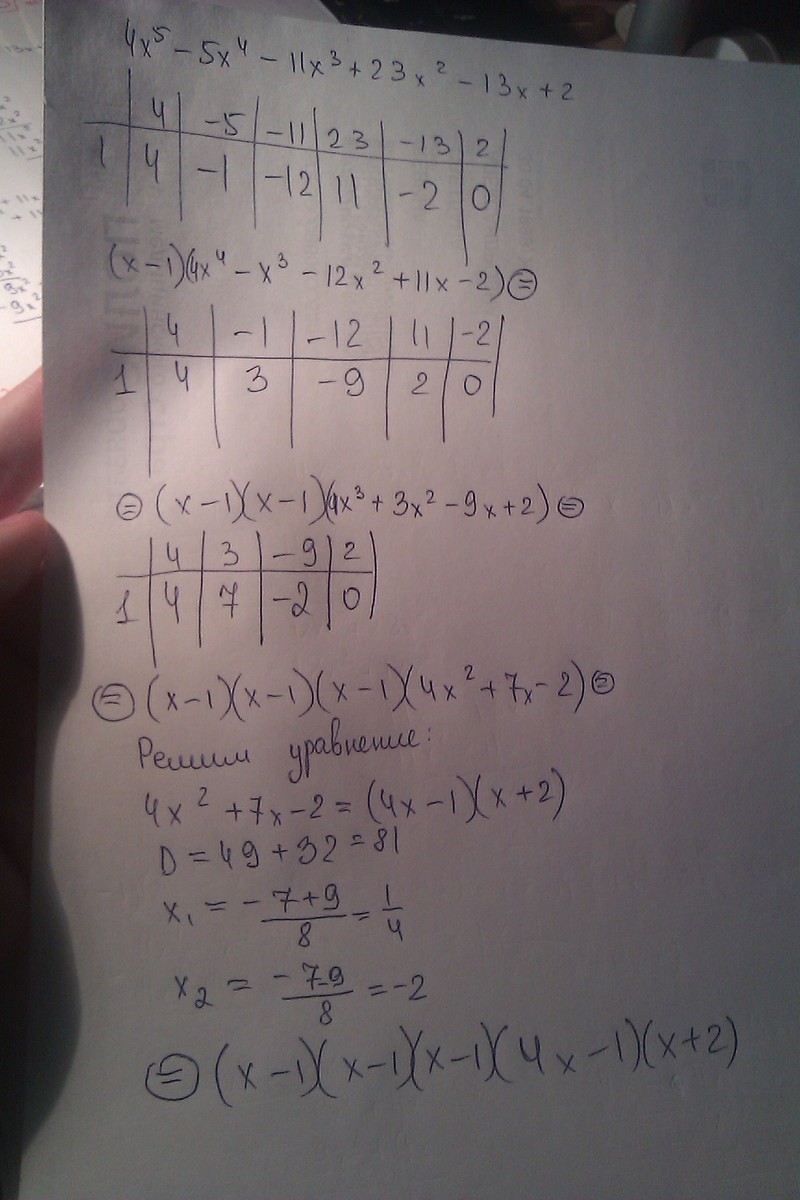 4x⁵ − 5x⁴ − 11x³ + 23x² − 13x + 2
4 | −5 | −11 | 23 | −13 | 2
1 | 4 | −1 | −12 | 11 | −2 | 0
(x−1)(4x⁴ − x³ − 12x² + 11x − 2) ⊜
4 | −1 | −12 | 11 | −2
1 | 4 | 3 | −9 | 2 | 0
⊜ (x−1)(x−1)(4x³ + 3x² − 9x + 2) ⊜
4 | 3 | −9 | 2
1 | 4 | 7 | −2 | 0
⊜ (x−1)(x−1)(x−1)(4x² + 7x − 2) ⊜
Решим уравнение:
4x² + 7x − 2 = (4x − 1)(x + 2)
D = 49 + 32 = 81
x₁ = −7+9/8 = 1/4
x₂ = −7−9/8 = −2
⊜ (x−1)(x−1)(x−1)(4x−1)(x+2)